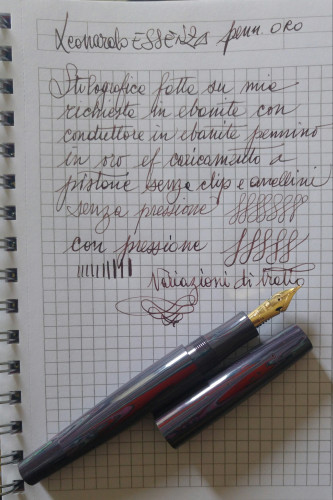 Leonardo ESSENZA penn. ORO
Stilografica fatta su mia
richiesta in ebanite con
conduttore in ebanite pennino
in oro ef caricamento a
pistone senza clip e anellini
senza pressione
con pressione
Variazioni di tratto